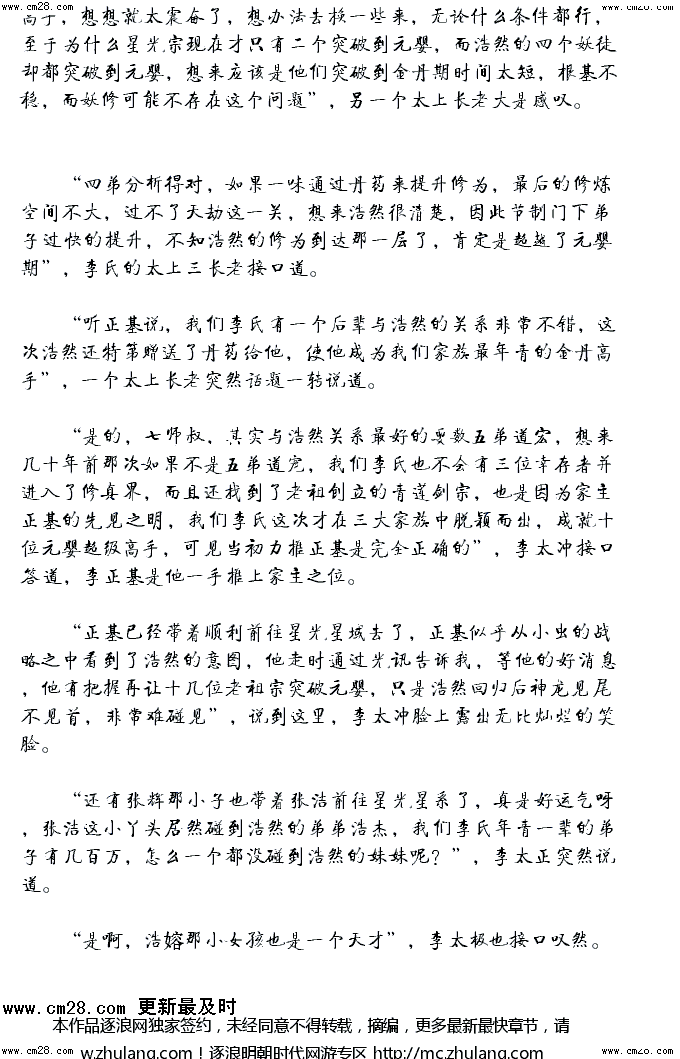 www.cm28.com www.cm28.com
高手，想想就太震奋了，想办法去换一些来，无论什么条件都行，
至于为什么星光宗现在才只有二个突破到元婴，而浩然的四个妖徒
却都突破到元婴，想来应该是他们突破到金丹期时间太短，根基不
稳，而妖修可能不存在这个问题”，另一个太上长老大是感叹。
“四弟分析得对，如果一味通过丹药来提升修为，最后的修炼
空间不大，过不了天劫这一关，想来浩然很清楚，因此节制门下弟
子过快的提升，不知浩然的修为到达那一层了，肯定是超越了元婴
期”，李氏的太上三长老接口道。
“听正基说，我们李氏有一个后辈与浩然的关系非常不错，这
次浩然还特第赠送了丹药给他，使他成为我们家族最年青的金丹高
手”，一个太上长老突然话题一转说道。
“是的，七师叔，其实与浩然关系最好的要数五弟道宏，想来
几十年前那次如果不是五弟道宏，我们李氏也不会有三位幸存者并
进入了修真界，而且还找到了老祖创立的青莲剑宗，也是因为家主
正基的先见之明，我们李氏这次才在三大家族中脱颖而出，成就十
位元婴超级高手，可见当初力推正基是完全正确的”，李太冲接口
答道，李正基是他一手推上家主之位。
“正基已经带着顺利前往星光星域去了，正基似乎从小虫的战
略之中看到了浩然的意图，他走时通过光讯告诉我，等他的好消息
，他有把握再让十几位老祖宗突破元婴，只是浩然回归后神龙见尾
不见首，非常难碰见”，说到这里，李太冲脸上露出无比灿烂的笑
脸。
“还有张辉那小子也带着张洁前往星光星系了，真是好运气呀
，张洁这小丫头居然碰到浩然的弟弟浩杰，我们李氏年青一辈的弟
子有几百万，怎么一个都没碰到浩然的妹妹呢？”，李太正突然说
道。
“是啊，浩嫆那小女孩也是一个天才”，李太极也接口叹然。
www.cm28.com 更新最及时
本作品逐浪网独家签约，未经同意不得转载，摘编，更多最新最快章节，请
www.cm28.com w.zhulang.com！逐浪明朝时代网游专区 http://mc.zhulang.com/ www.cm28.com